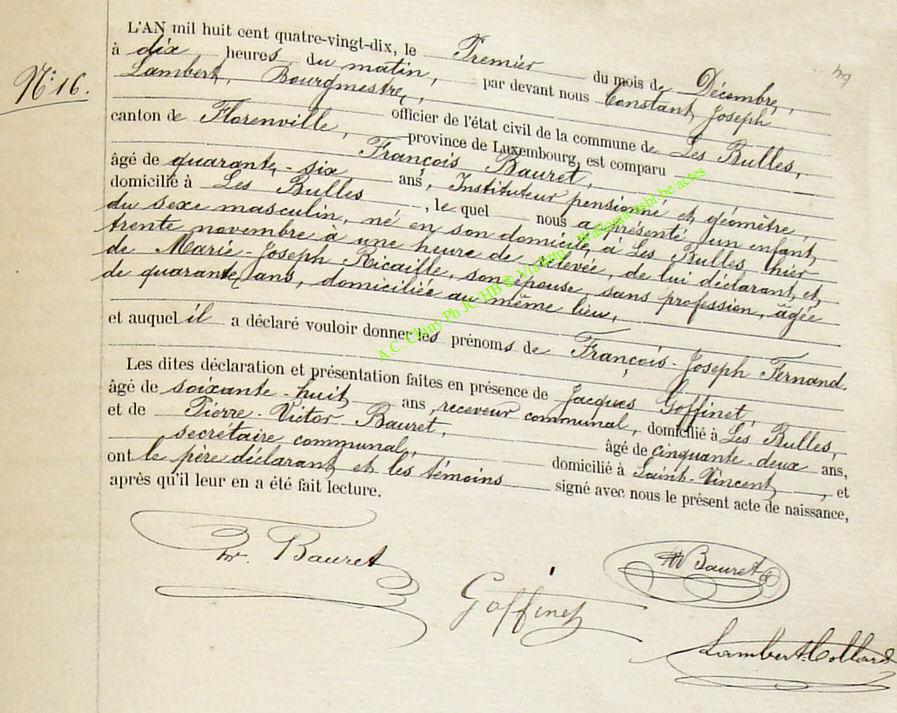 N° 16.
L'AN mil huit cent quatre-vingt-dix, le Premier du mois de Décembre,
à dix heures du matin, par devant nous Constant Joseph
Lambert, Bourgmestre, officier de l'état civil de la commune de Les Bulles,
canton de Florenville, province de Luxembourg, est comparu
François Bauret,
âgé de quarante-six ans, Instituteur pensionné et géomètre
domicilié à Les Bulles, le quel nous a présenté un enfant
du sexe masculin, né en son domicile, à Les Bulles, hier
trente novembre à une heure de relevée, de lui déclarant, et
de Marie-Joseph Ricaille, son épouse, sans profession, âgée
de quarante ans, domiciliée au même lieu,
et auquel il a déclaré vouloir donner les prénoms de François-Joseph Fernand.
Les dites déclaration et présentation faites en présence de Jacques Goffinet,
âgé de soixante-huit ans, receveur communal, domicilié à Les Bulles,
et de Pierre-Victor Bauret, âgé de cinquante-deux ans,
secrétaire communal, domicilié à Saint-Vincent, et
ont le père déclarant et les témoins signé avec nous le présent acte de naissance,
après qu'il leur en a été fait lecture.
Bauret
Bauret
Goffinet
Lambert Collard
A.C. Chiny Ph JC HB ©